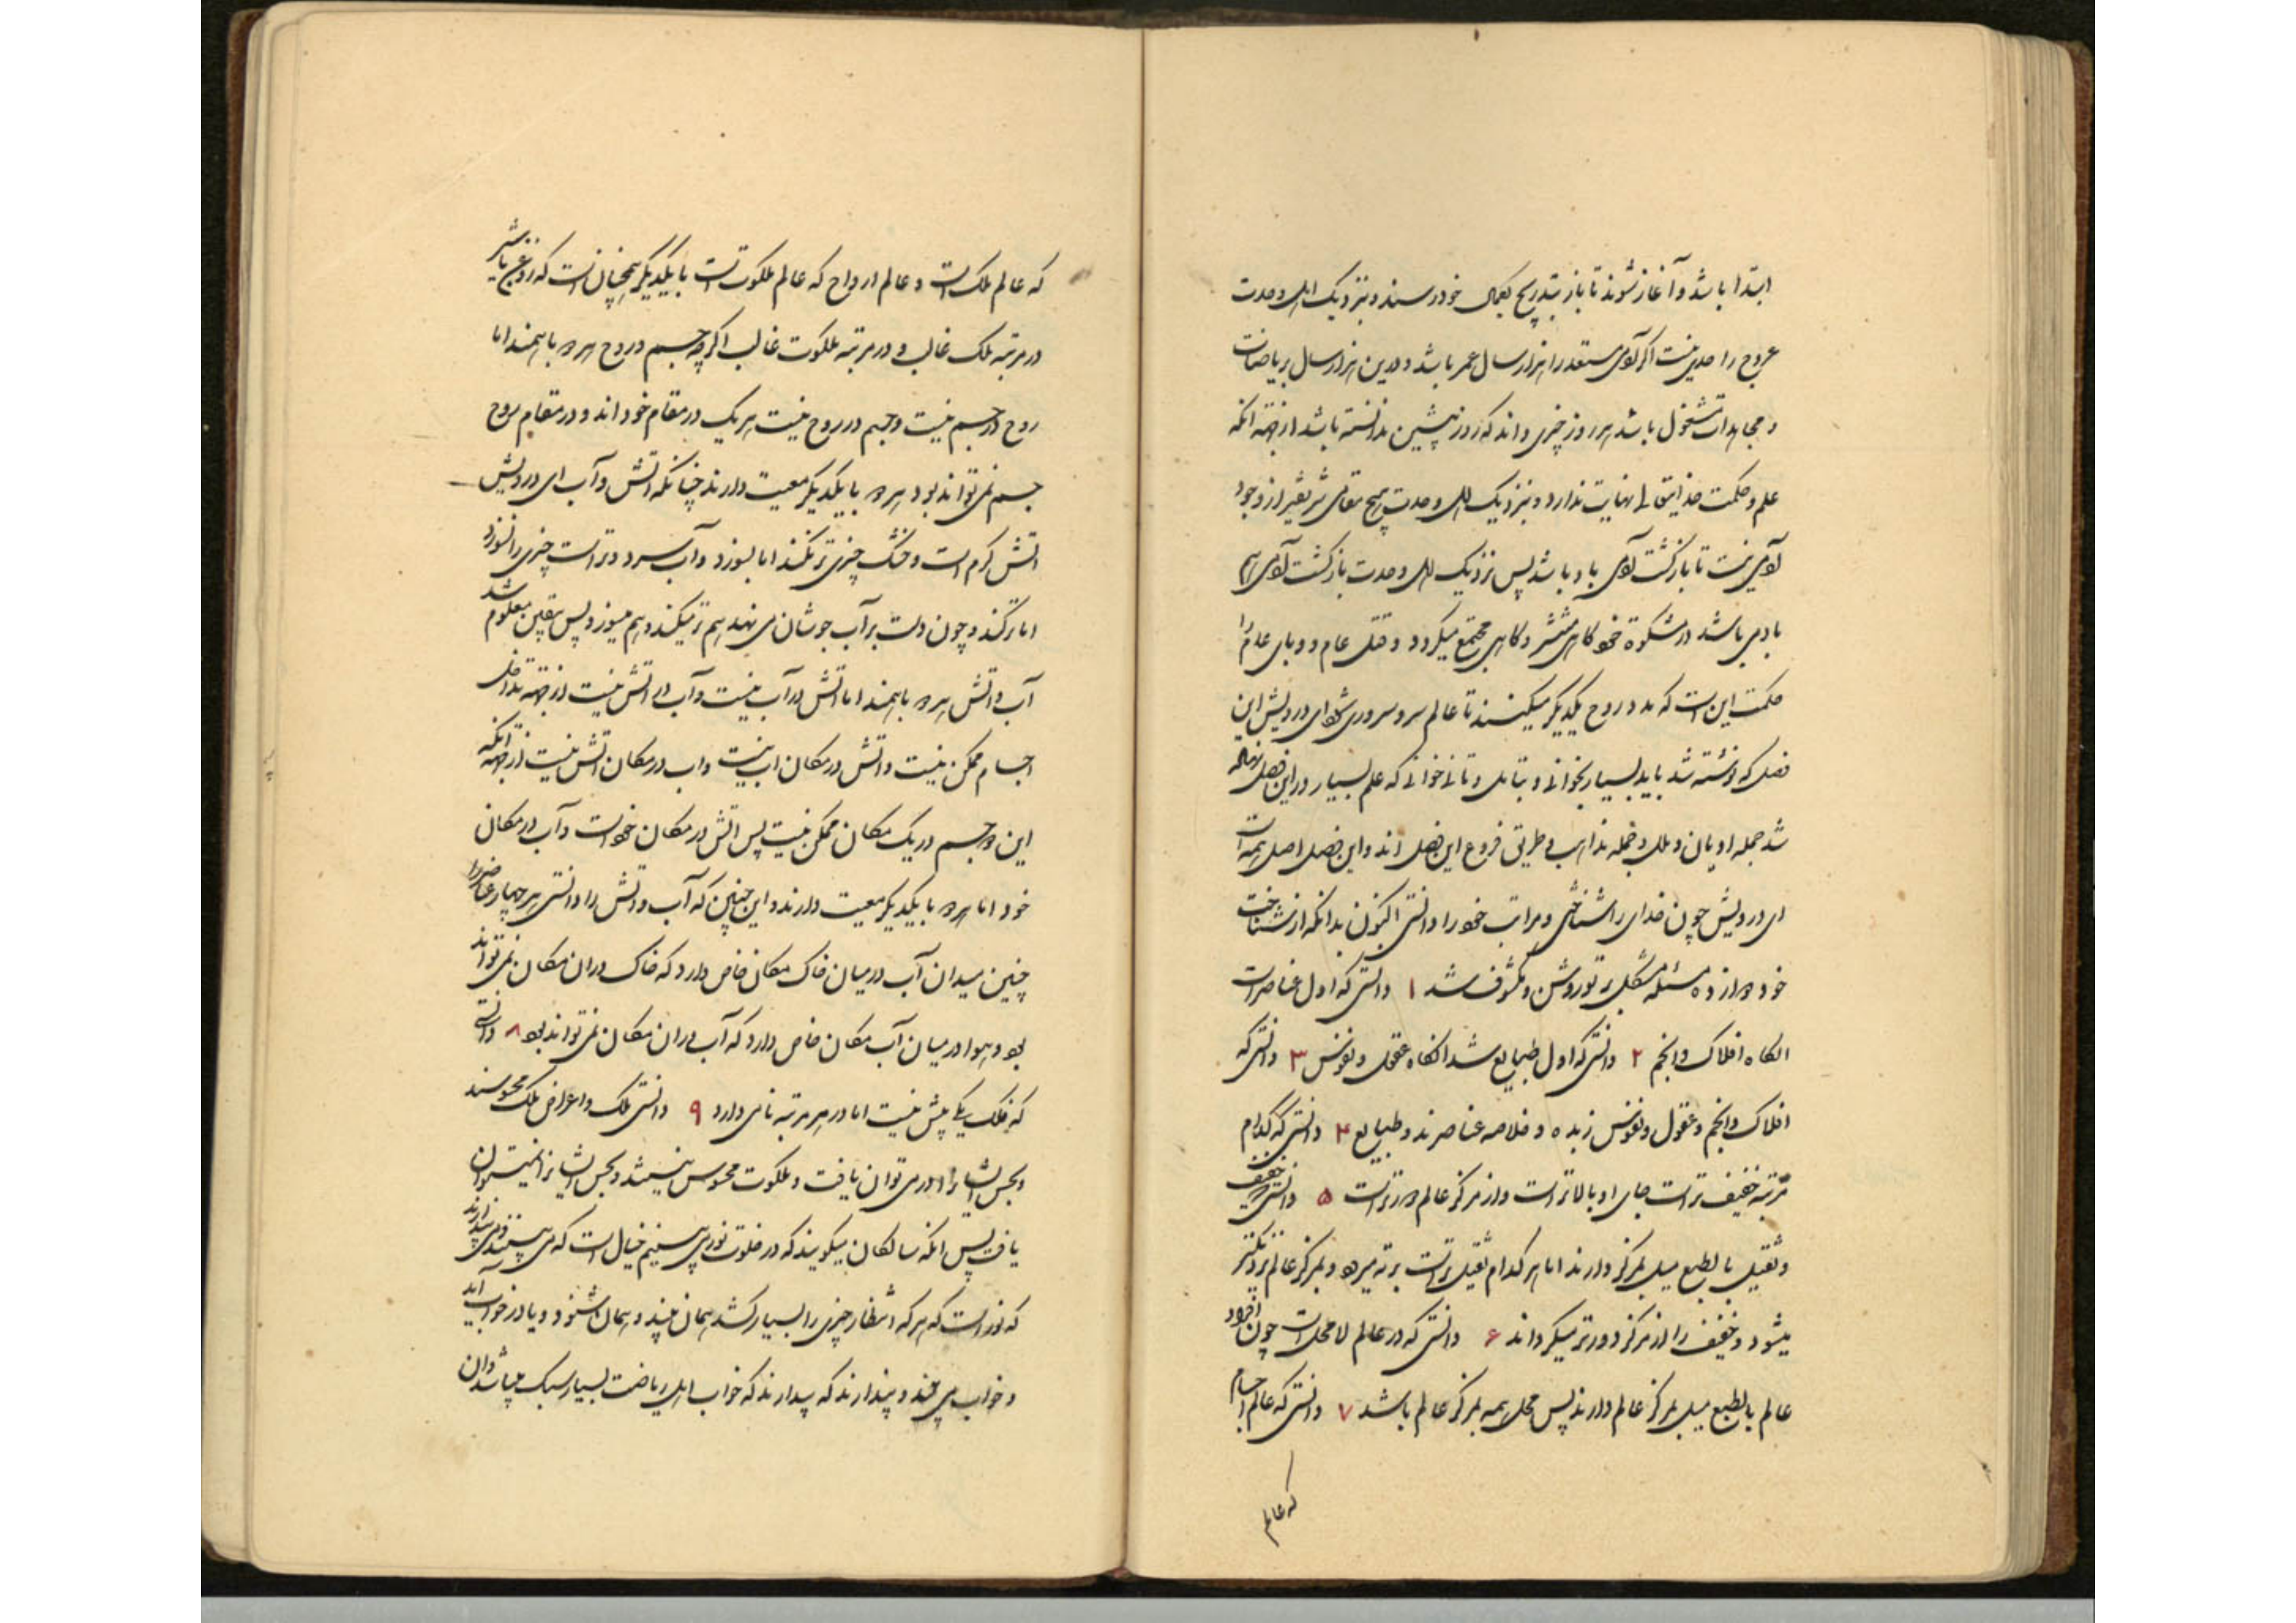 ابتدا باشد و آغاز شوند تا باز بتدریج بکمال خود رسند و بنزدیک اهل وحدت
عروج را حدی نیست اگر آدمی مستعد را هزار سال عمر باشد و درین هزار سال بریاضات
و مجاهدات مشغول باشد هر روز چیزی داند که روز پیشین ندانسته باشد از جهته انکه
علم و حکمت خدایتعالی نهایت ندارد و بنزدیک اهل وحدت هیچ مقامی شریفتر از وجود
آدمی نیست تا بازگشت آدمی باو باشد پس نزدیک اهل وحدت بازگشت آدمی هم
بآدمی باشد در مشکوة خود گاهی منتشر و گاهی مجتمع میگردد و قتل عام و وبای عام را
حکمت این است که مدد روح یکدیگر میکنند تا عالم سر و سروری شود ای درویش این
فصل که نوشته شد باید بسیار بخوانی و بتامل و تانی خوانی که علم بسیار در این فصل نهاده
شد جمله ادیان و ملل و جمله مذاهب و طریق فروع این فصل اند و این فصل اصل همه است
ای درویش چون خدای را شناختی و مراتب خود را دانستی اکنون بدانکه از شناخت
خود دوازده مسئله مشکل بر تو روشن و مکشوف شد ۱ دانستی که اول عناصر است
انگاه افلاک و انجم ۲ دانستی که اول طبایع شد انگاه عقول و نفوس ۳ دانستی که
افلاک و انجم و عقول و نفوس زبده و خلاصه عناصرند و طبایع ۴ دانستی که هر کدام
مرتبه خفیف تر است جای او بالاتر است و از مرکز عالم دورتر است ۵ دانستی که خفیف
و ثقیل بالطبع میل بمرکز دارند اما هر کدام ثقیل تر است بر ته میرود و بمرکز عالم نزدیکتر
میشود و خفیف را از مرکز دورتر میگرداند ۶ دانستی که در عالم لا محل است چون اجزاء
عالم بالطبع میل بمرکز عالم دارند پس محل همه بمرکز عالم باشد ۷ دانستی که عالم اجسام
که عالم
که عالم ملک است و عالم ارواح که عالم ملکوت است با یکدیگر همچنان است که روغن با شیر
در مرتبه ملک غالب و در مرتبه ملکوت غالب اگرچه جسم و روح هر دو باهمند اما
روح در جسم نیست و جسم در روح نیست هر یک در مقام خود اند و در مقام روح
جسم نمی تواند بود هر دو با یکدیگر معیت دارند چنانکه اتش و آب ای درویش
اتش گرم است و خشک چیزی تر نکند اما بسوزد و آب سرد و تر است چیزی را نسوزد
اما تر کند و چون دست بر آب جوشان می نهند هم تر میکند و هم میسوزد پس بیقین معلوم شد
آب و اتش هر دو باهمند اما اتش در آب نیست و آب در اتش نیست از جهته تداخل
اجسام ممکن نیست و اتش در مکان اب نیست و اب در مکان اتش نیست از جهته انکه
این دو جسم در یک مکان ممکن نیست پس اتش در مکان خود است و آب در مکان
خود اما هر دو با یکدیگر معیت دارند و این چنین که آب و اتش را دانستی هر چهار عناصر را
چنین میدان آب در میان خاک مکانی خاص دارد که خاک در ان مکان نمی تواند
بود و هوا در میان آب مکان خاص دارد که آب در ان مکان نمی تواند بود ۸ دانستی
که فلک یکی بیش نیست اما در هر مرتبه نامی دارد ۹ دانستی ملک و اعراض ملک محسوسند
و بحس ایشانرا در می توان یافت و ملکوت محسوس نیستند و بحس ایشانرا نمیتوان
یافت پس انکه سالکان میگویند که در خلوت نور می بینیم خیال است که می بینند و می پندارند
که نور است که هر که انتظار چیزی را بسیار کشد همان بیند و همان شنود و یا در خواب آید
و خواب می بیند و پندارند که بیدارند که خواب اهل ریاضت بسیار سبک میباشد و ان